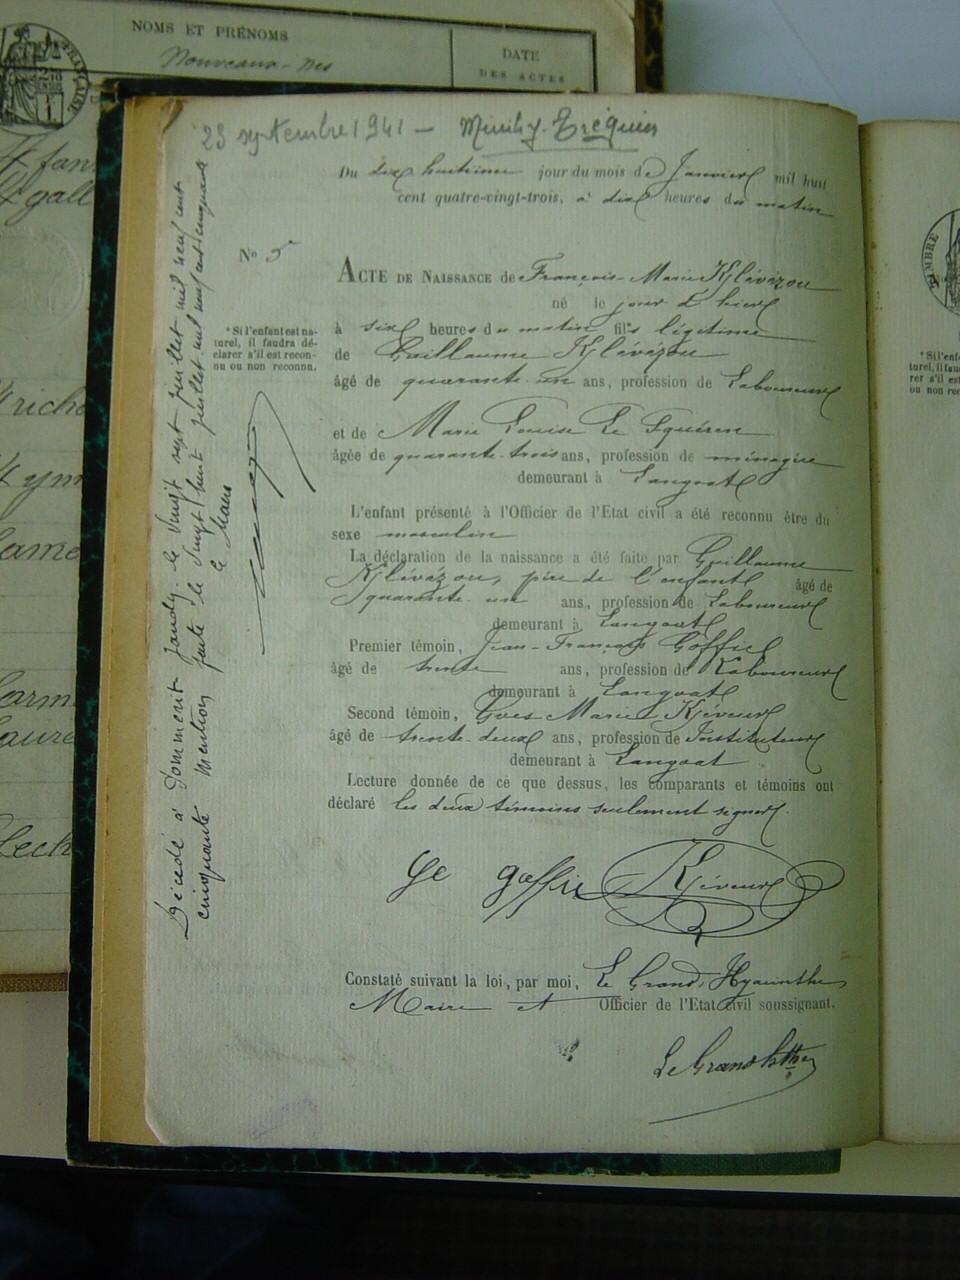 NOMS ET PRÉNOMS
Nouveaux-nés
DATE
DES ACTES
FRANÇAISE
23 septembre 1941 - Minihy-Tréguier
Du dix huitième jour du mois de Janvier mil huit
cent quatre-vingt-trois, à dix heures du matin
No 5
ACTE DE NAISSANCE de François-Marie Klévézou
né le jour d'hier
à six heures du matin fils légitime
* Si l'enfant est na-
turel, il faudra dé-
clarer s'il est recon-
nu ou non reconnu.
de Guillaume Klévézou
âgé de quarante-un ans, profession de Laboureur
et de Marie Louise Le
âgée de quarante-trois ans, profession de ménagère
demeurant à Langoat
L'enfant présenté à l'Officier de l'Etat civil a été reconnu être du
sexe masculin
La déclaration de la naissance a été faite par Guillaume
Klévézou, père de l'enfant âgé de
quarante-un ans, profession de Laboureur
demeurant à Langoat
Premier témoin, Jean-François Goffic
âgé de trente ans, profession de Laboureur
demeurant à Langoat
Second témoin, Yves Marie Kjéveur
âgé de trente-deux ans, profession de Instituteur
demeurant à Langoat
Lecture donnée de ce que dessus, les comparants et témoins ont
déclaré les deux témoins seulement signer.
Le goffic Kjéveur
Constaté suivant la loi, par moi, Le Grand, Hyacinthe
Maire et Officier de l'Etat civil soussignant.
Le Grand
Décédé à Pommerit Jaudy le vingt sept juillet mil neuf cent
cinquante mention faite le vingt huit juillet mil neuf cent cinquante
Le Maire
TIMBRE
* Si l'enf
turel, il fau
rer s'il est
ou non rec